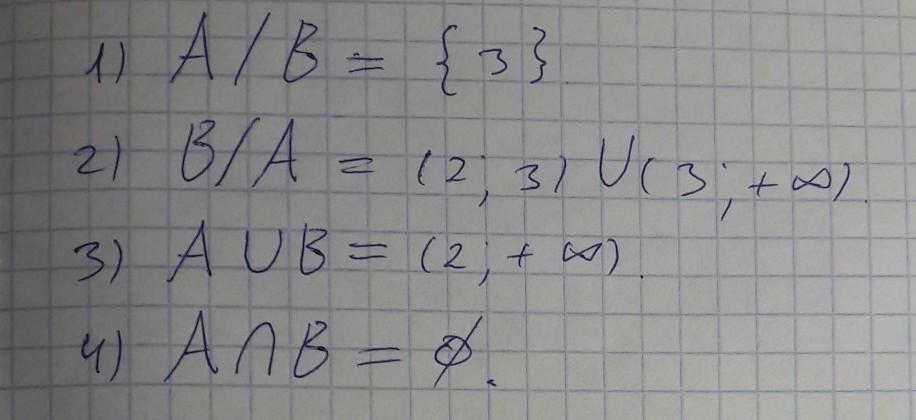 1) A / B = { 3 }.
2) B / A = (2 ; 3) ∪ (3 ; + ∞).
3) A ∪ B = (2 ; + ∞).
4) A ∩ B = ∅.